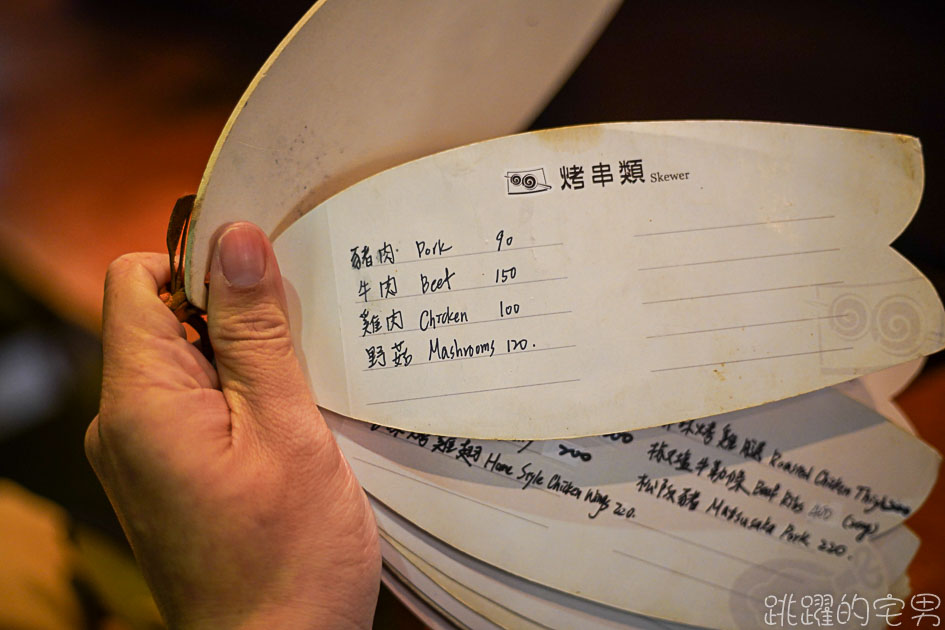 烤串類 Skewer
豬肉 Pork 90
牛肉 Beef 150
雞肉 Chicken 100
野菇 Mashrooms 120.
烤雞翅 Home Style Chicken Wings 220.
200
烤雞腿 Roasted Chicken Thigh
椒鹽牛肋條 Beef Ribs
松阪豬 Matsusaka Pork 220.
跳躍的宅男